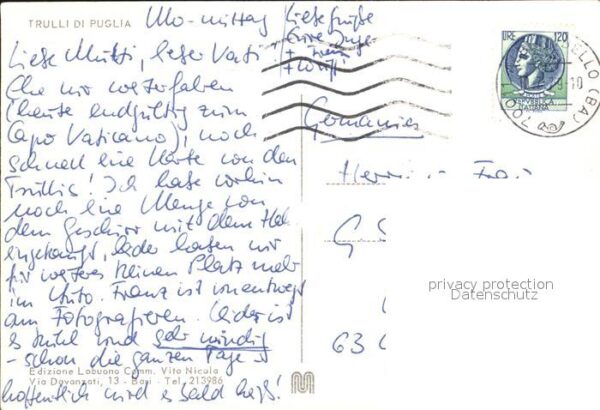 TRULLI DI PUGLIA
Mo-mittag
Liebe Grüße
Eure Inge
+ Franz
Liebe Mutti, lieber Vati!
Ehe wir weiterfahren
(heute endgültig zum
Capo Vaticano), noch
schnell eine Karte von den
Trullis! Ich habe vorhin
noch eine Menge von
dem Geschirr mit dem
eingekauft, leider haben wir
für weiteres keinen Platz mehr
im Auto. Franz ist unentwegt
am Fotografieren. Leider ist
es kühl und sehr windig
- schon die ganzen Tage -
hoffentlich wird es bald heiß!
Edizione Lobuono Comm. Vito Nicola
Via Davanzati, 13 - Bari - Tel. 213986
LIRE 120
REPVBBLICA
ITALIANA
ELLO (BA)
700
10
Germania
Herrn
G
63
privacy protection
Datenschutz